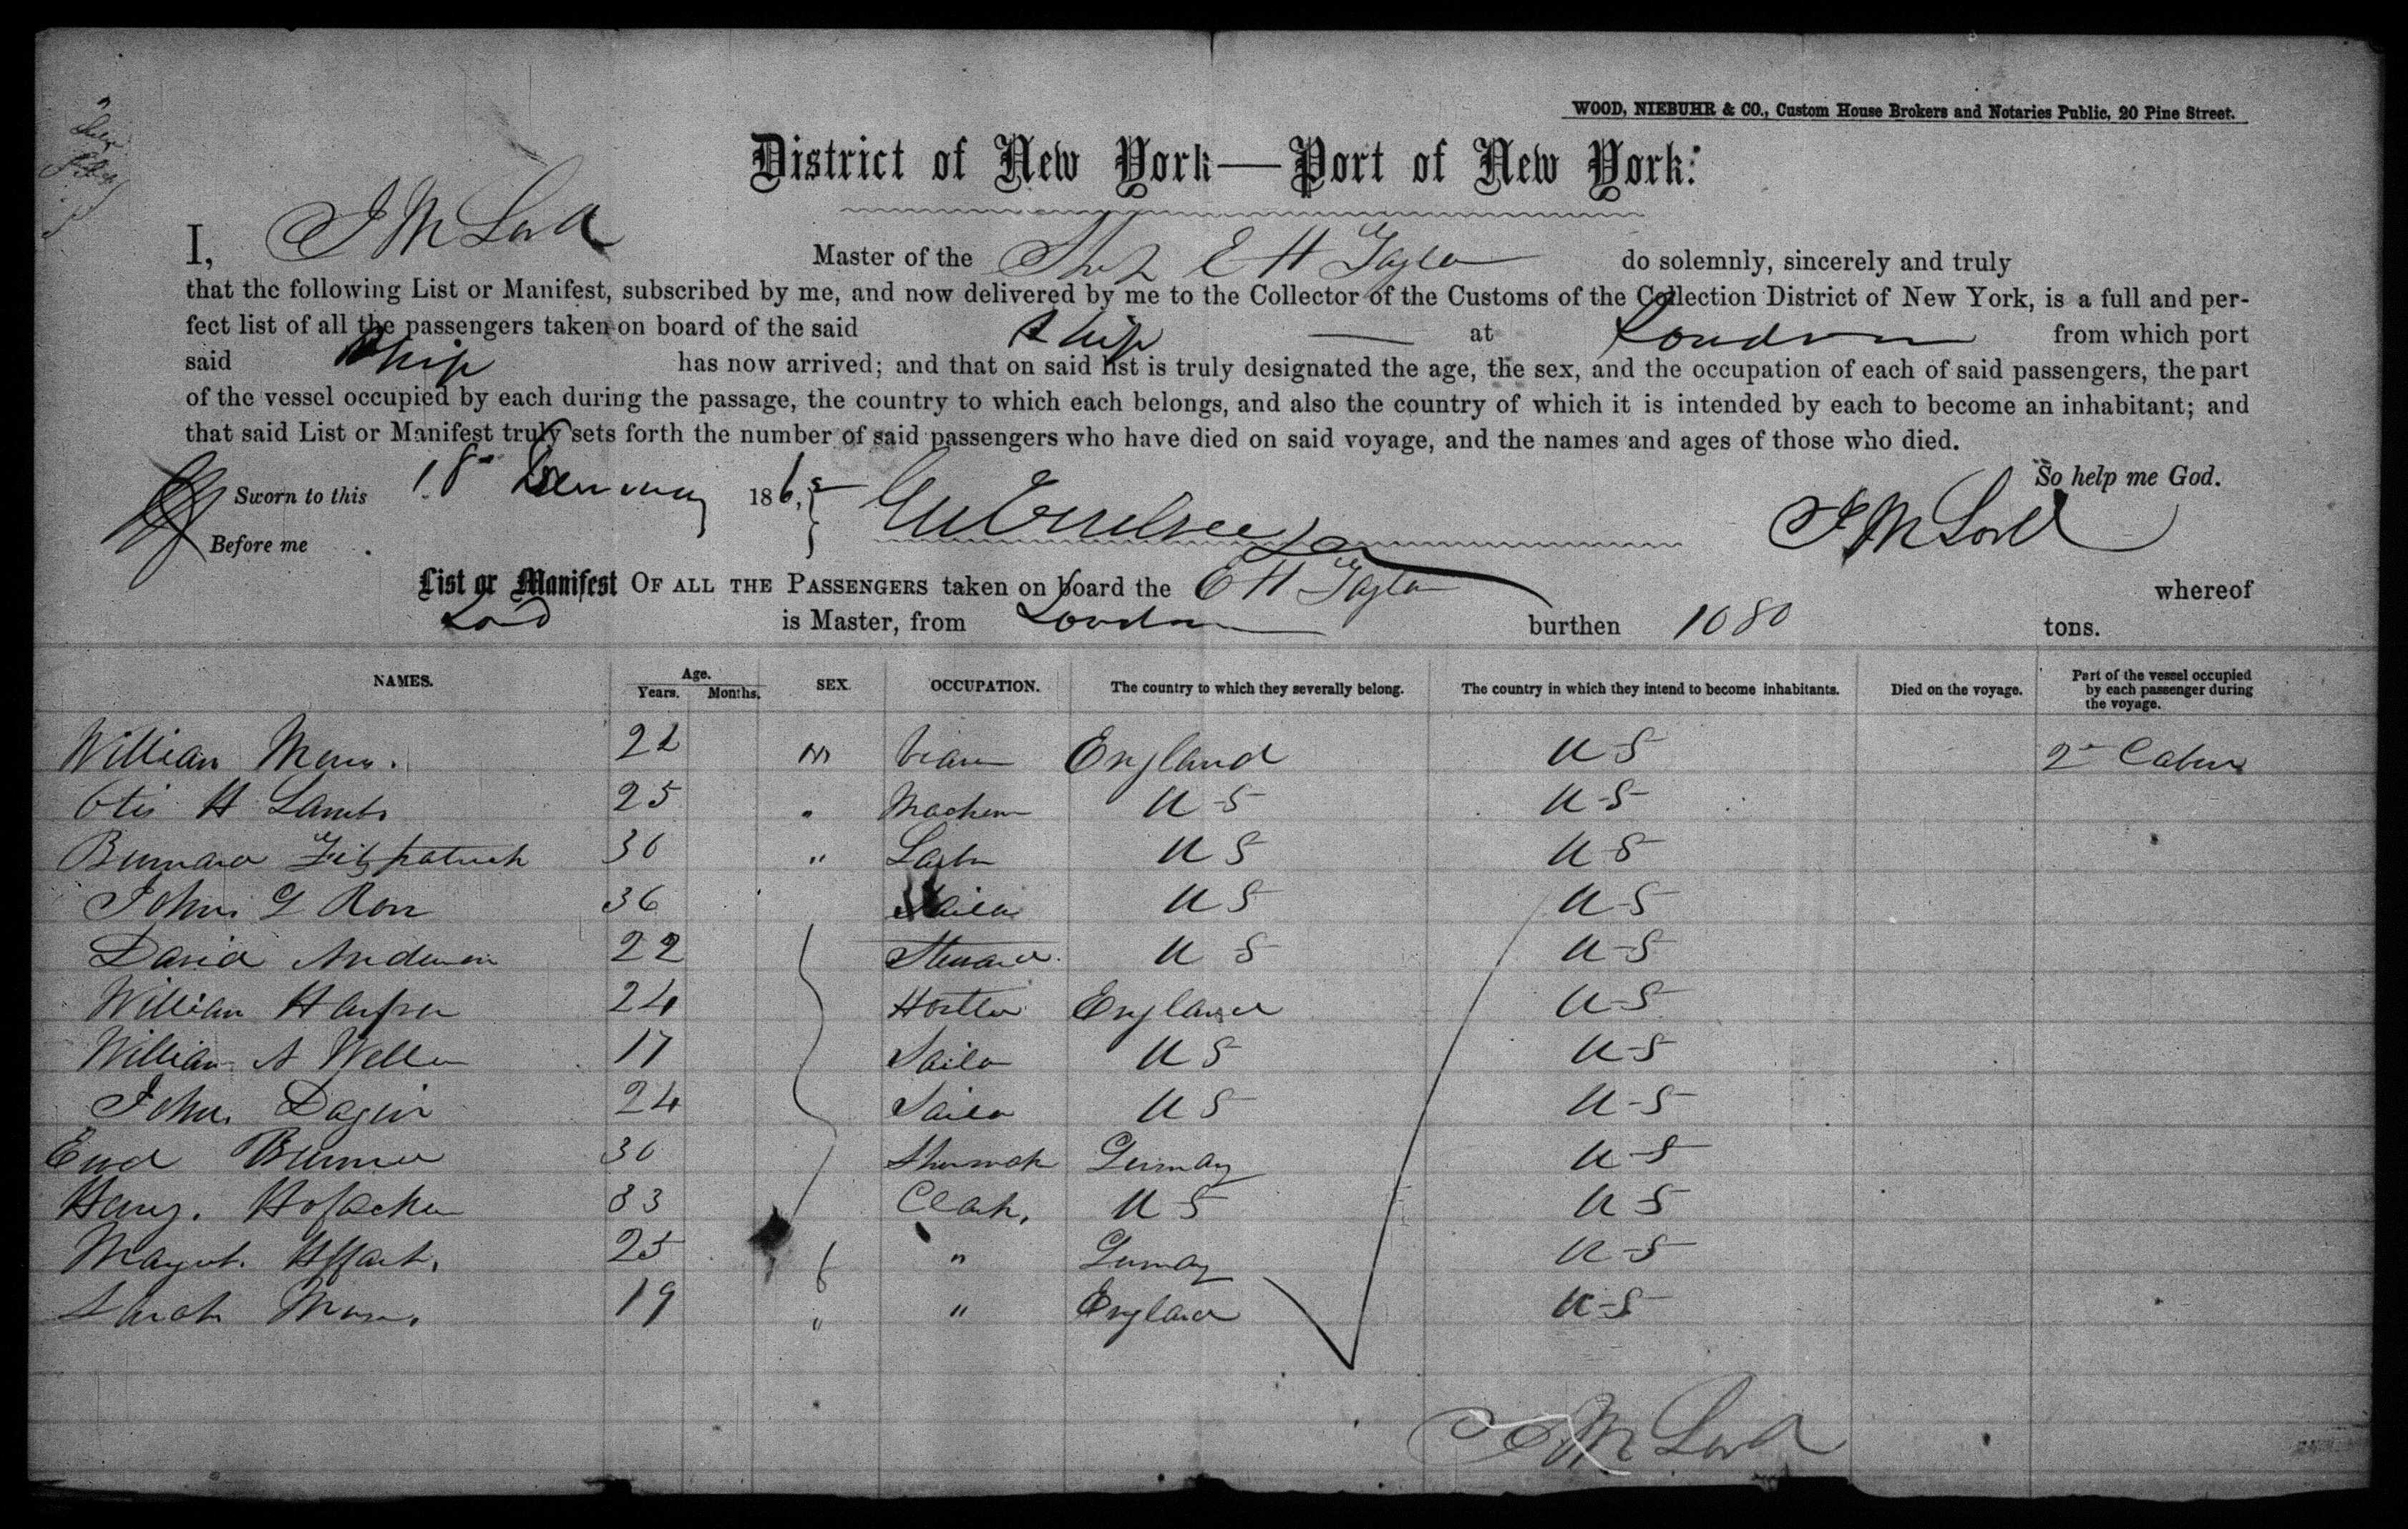 WOOD, NIEBUHR & CO., Custom House Brokers and Notaries Public, 20 Pine Street.
District of New York—Port of New York:
I, J M Lord Master of the Ship E H Taylor do solemnly, sincerely and truly
that the following List or Manifest, subscribed by me, and now delivered by me to the Collector of the Customs of the Collection District of New York, is a full and per-
fect list of all the passengers taken on board of the said Ship at London from which port
said Ship has now arrived; and that on said list is truly designated the age, the sex, and the occupation of each of said passengers, the part
of the vessel occupied by each during the passage, the country to which each belongs, and also the country of which it is intended by each to become an inhabitant; and
that said List or Manifest truly sets forth the number of said passengers who have died on said voyage, and the names and ages of those who died.
So help me God.
Sworn to this 18 186,5
J M Lord
Before me
List or Manifest OF ALL THE PASSENGERS taken on board the E H Taylor whereof
Lord is Master, from London burthen 1080 tons.
NAMES. Age. Years. Months. SEX. OCCUPATION. The country to which they severally belong. The country in which they intend to become inhabitants. Died on the voyage. Part of the vessel occupied by each passenger during the voyage.
William 22 m England U-S 2 Cabin
Otis H Lambs 25 " U-S U-S
Bernard Fitzpatrick 36 " U S U-S
John G 36 Sailor U S U-S
David Anderson 22 Steward U S U-S
William 24 Hostler England U-S
William A Weller 17 Sailor U S U-S
John 24 Sailor U S U-S
30 Germany U-S
Clark, U S U-S
25 f " Germany U-S
Sarah 19 " " England U-S
J M Lord